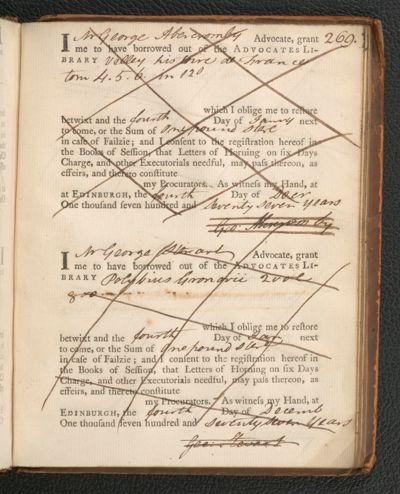 269.
I Mr George Abercromby Advocate, grant
me to have borrowed out of the ADVOCATES LI-
BRARY Velley his toire de France
tom 4. 5. 6. in 12o
which I oblige me to reſtore
betwixt and the fourth Day of Janry next
to come, or the Sum of One pound Ster
in caſe of Failzie; and I conſent to the regiſtration hereof in
the Books of Seſſion, that Letters of Horning on ſix Days
Charge, and other Executorials needful, may paſs thereon, as
effeirs, and thereto conſtitute
my Procurators. As witneſs my Hand, at
at EDINBURGH, the fourth Day of Decr
One thouſand ſeven hundred and Seventy Seven years
Geo: Abercromby
I Mr George Stewart Advocate, grant
me to have borrowed out of the ADVOCATES LI-
BRARY Polybius Gronovii 2 vols
8vo
which I oblige me to reſtore
betwixt and the fourth Day of Jary next
to come, or the Sum of One pound Sterg
in caſe of Failzie; and I conſent to the regiſtration hereof in
the Books of Seſſion, that Letters of Horning on ſix Days
Charge, and other Executorials needful, may paſs thereon, as
effeirs, and thereto conſtitute
my Procurators. As witneſs my Hand, at
EDINBURGH, the fourth Day of Decemb
One thouſand ſeven hundred and Seventy Seven Years
Geo: Stewart